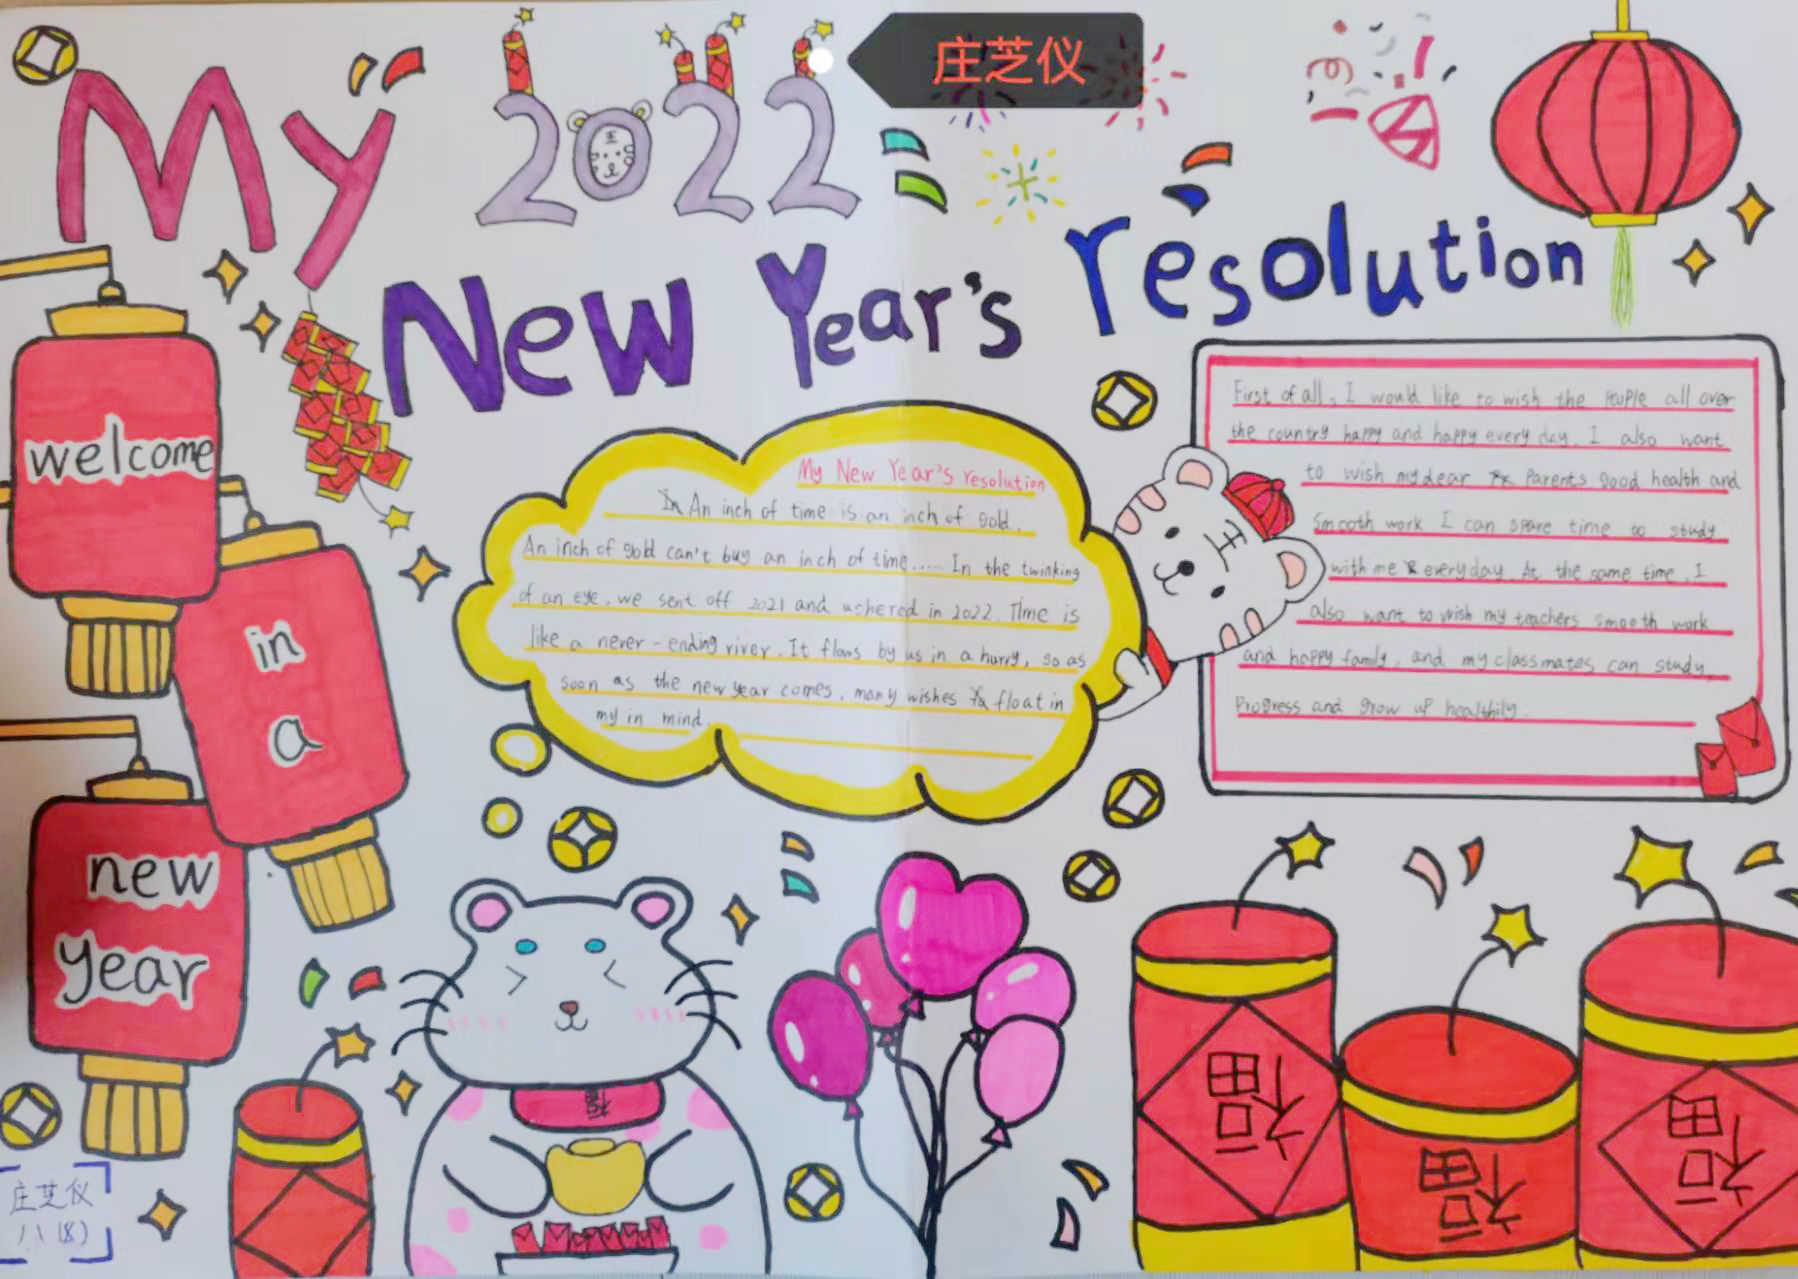 庄芝仪
My 2022
New Year's resolution
welcome
in
a
new
year
My New Year's resolution
An inch of time is an inch of gold.
An inch of gold can't buy an inch of time...... In the twinking
of an eye, we sent off 2021 and ushered in 2022. Time is
like a never-ending river. It flows by us in a hurry, so as
soon as the new year comes, many wishes float in
my in mind.
First of all, I would like to wish the people all over
the country happy and happy every day. I also want
to wish my dear Parents good health and
Smooth work I can spare time to study
with me everyday. At the same time, I
also want to wish my teachers smooth work
and happy family, and my classmates can study,
Progress and grow up healthily.
福
福
福
福
庄芝仪
八(8)